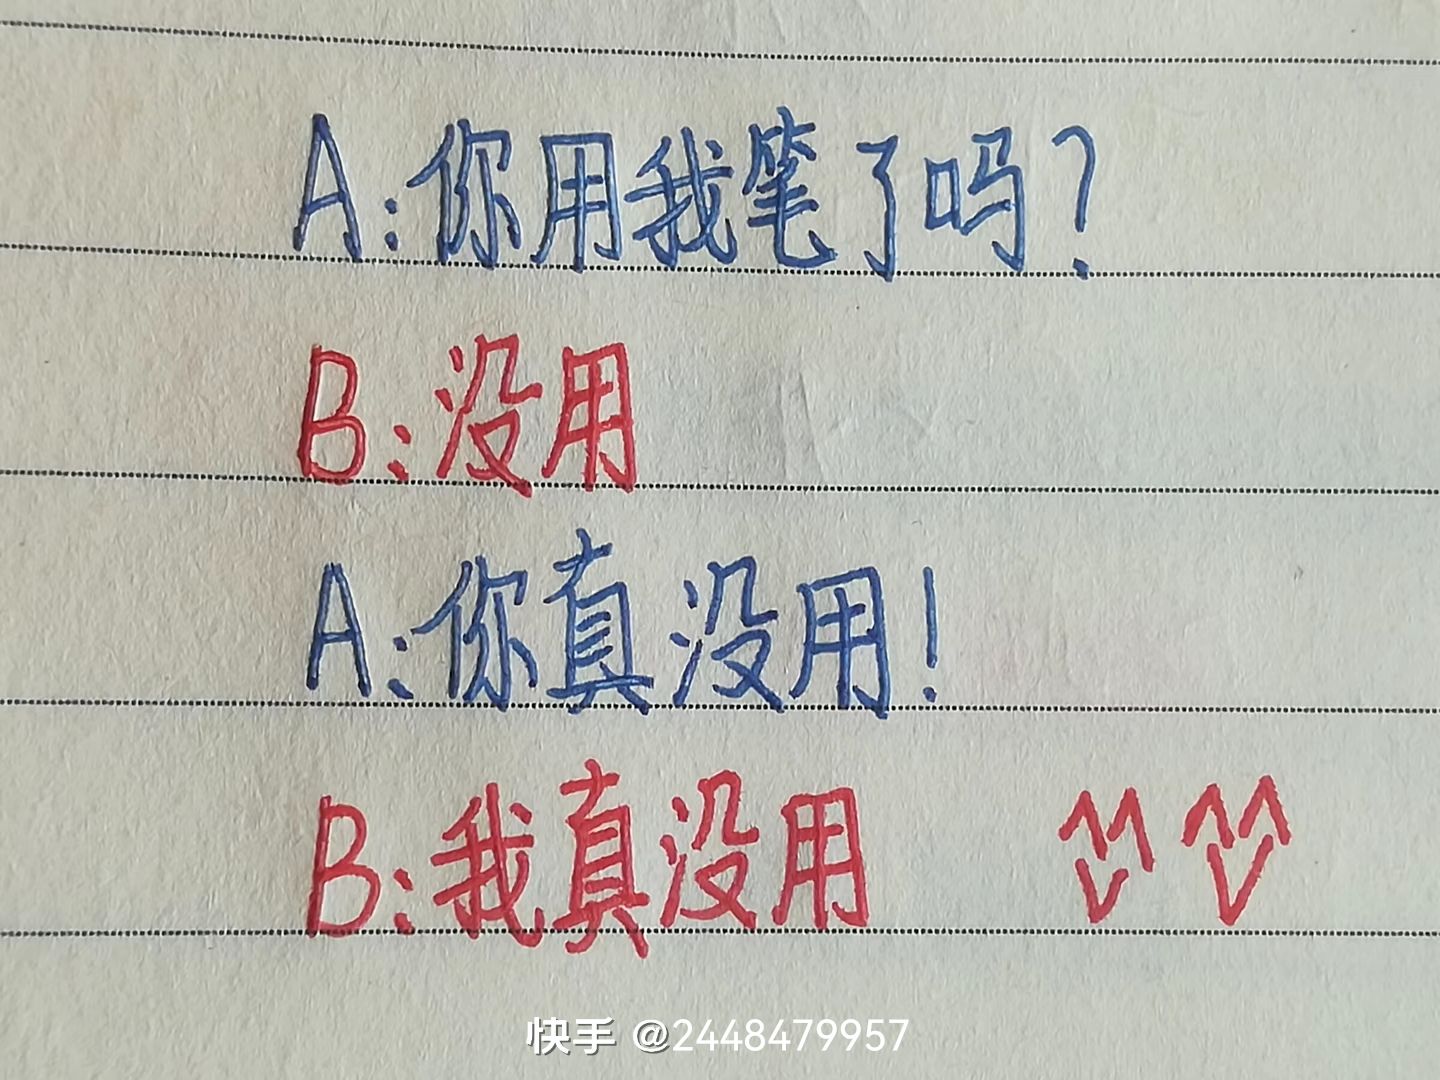 A:你用我笔了吗?
B:没用
A:你真没用!
B:我真没用
快手 @2448479957